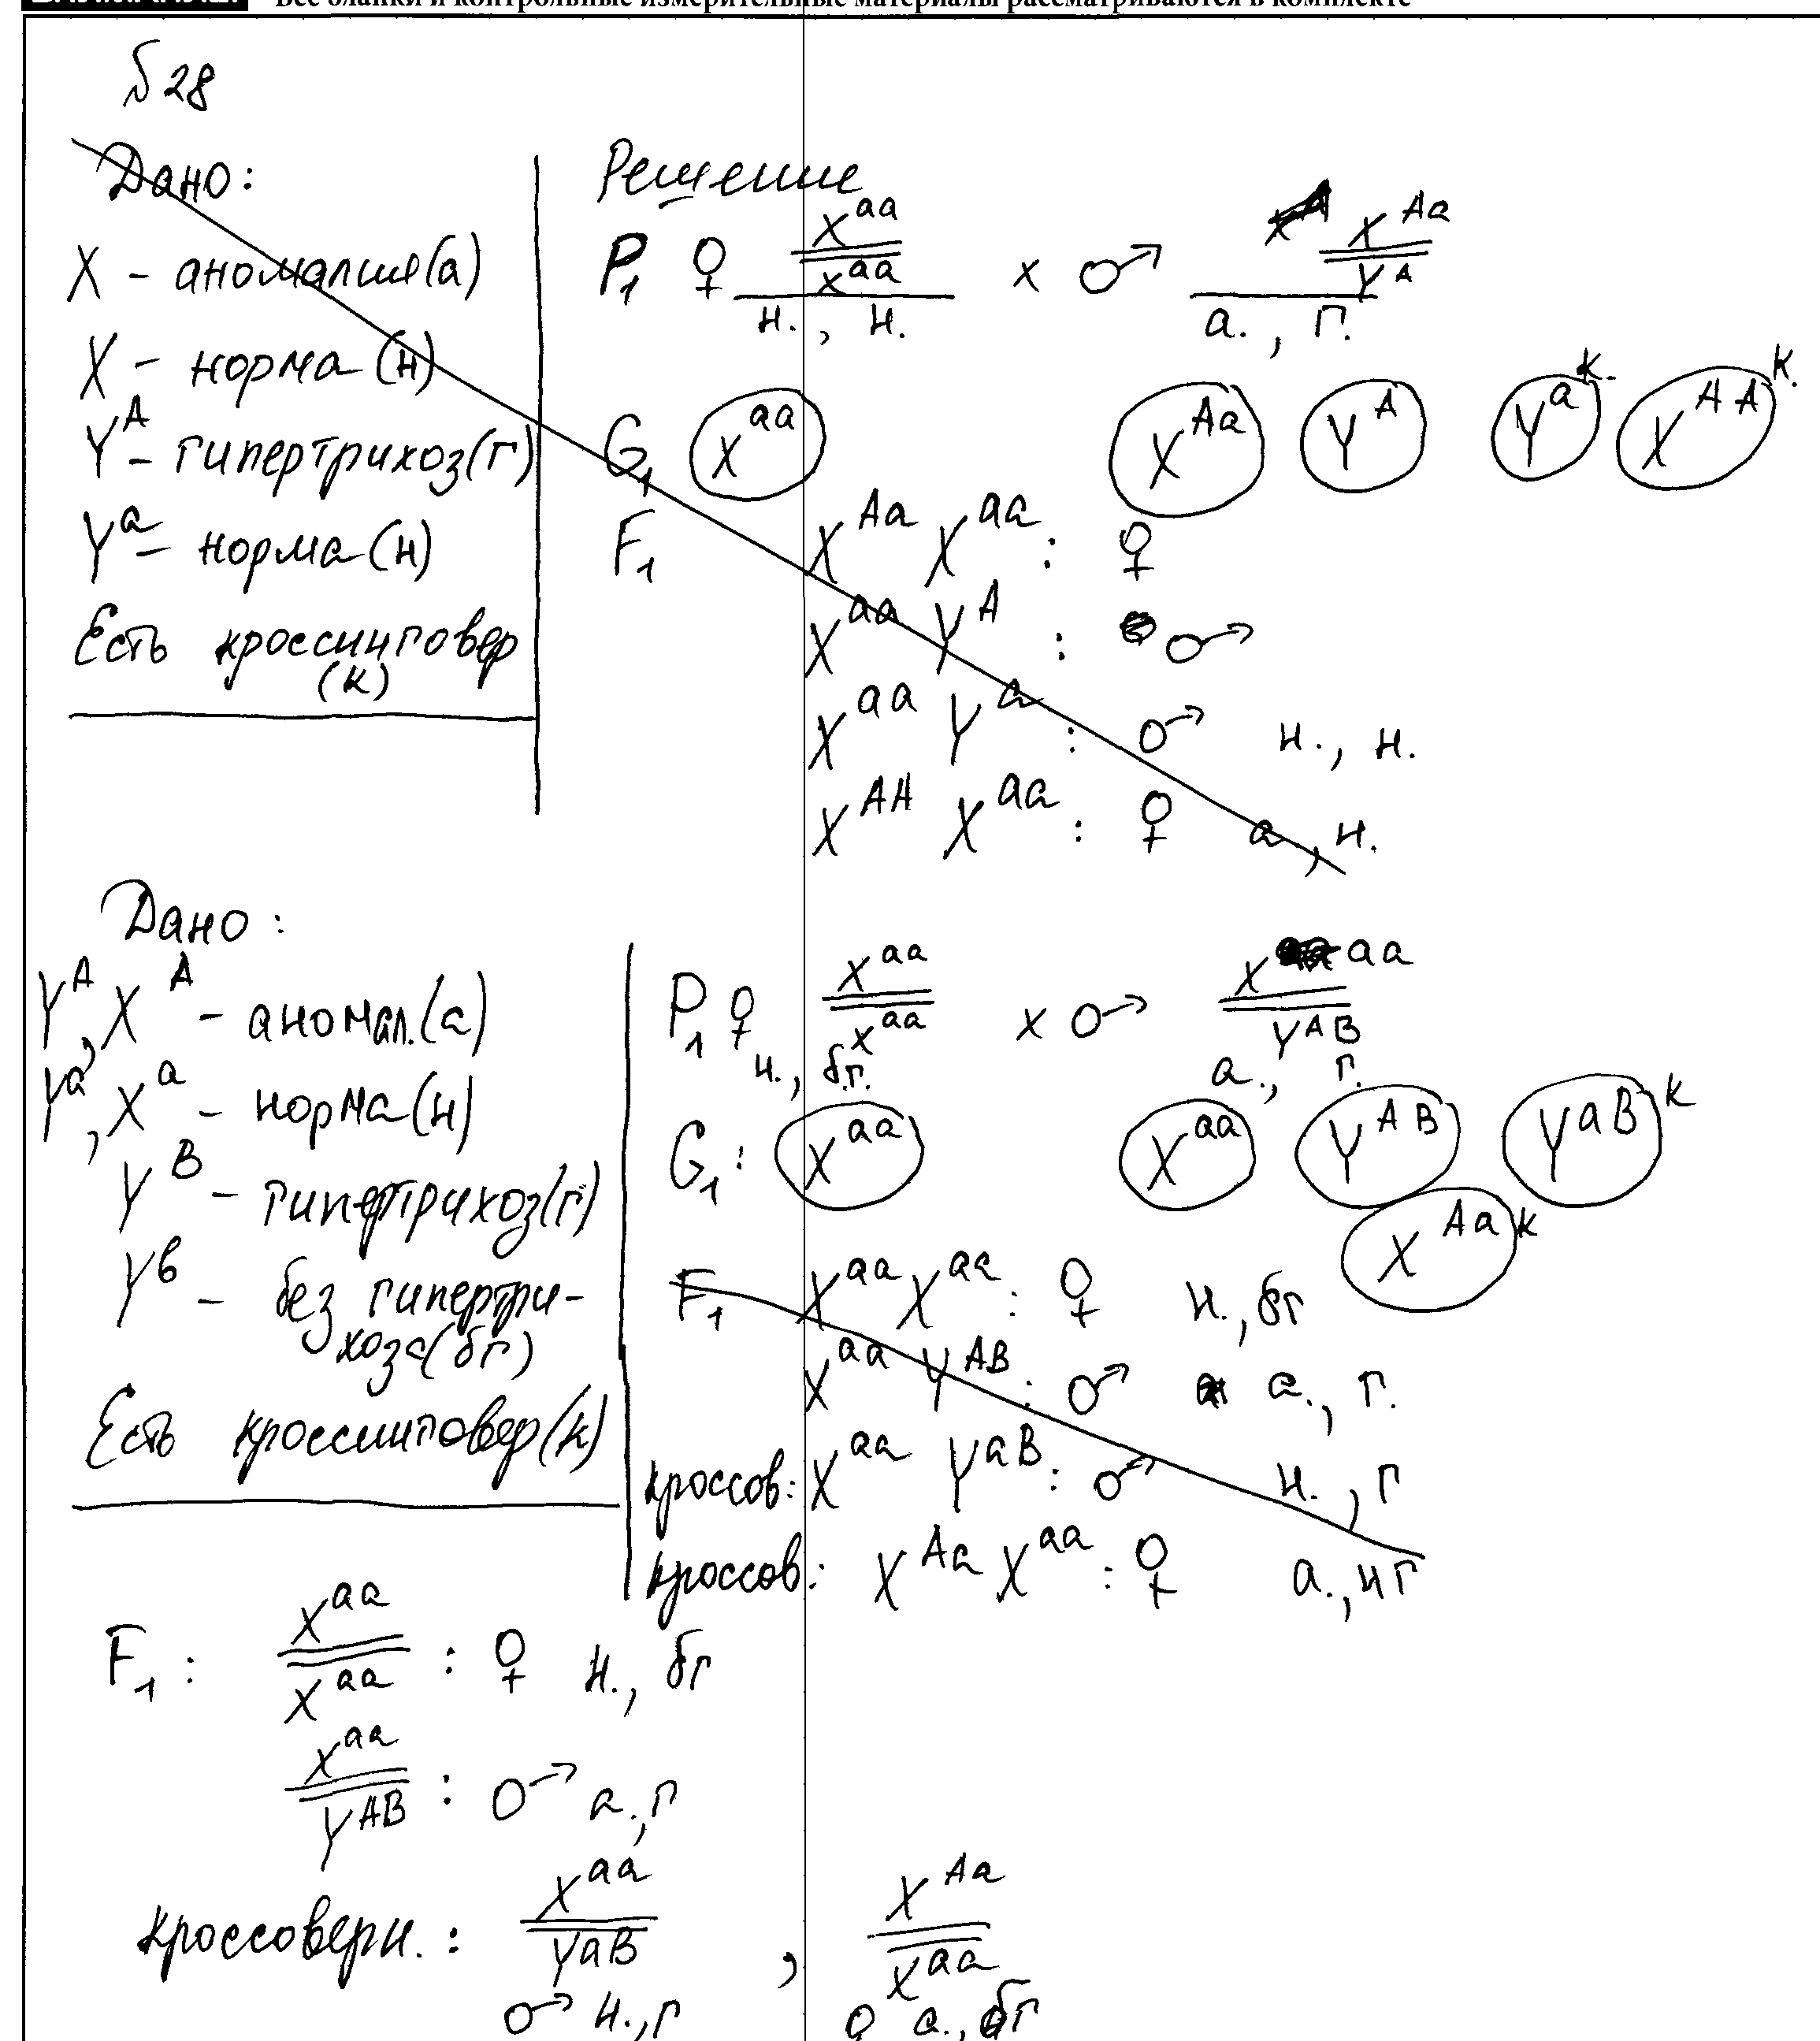 Все бланки и контрольные измерительные материалы рассматриваются в комплекте
№ 28
Дано:
X - аномалия (а)
X - норма (н)
Y^A - гипертрихоз (г)
Y^a - норма (н)
Есть кроссинговер
(к)
Решение
P1 ♀ X^aa / X^aa x ♂ X^Aa / Y^A
н., н. а., г.
G1 X^aa X^Aa Y^A Y^a к. X^AA к.
F1 X^Aa X^aa : ♀
X^aa Y^A : ♂
X^aa Y^a : ♂ н., н.
X^AA X^aa : ♀ а, н.
Дано:
Y^A, X^A - аномал. (а)
Y^a, X^a - норма (н)
Y^B - гипертрихоз (г)
Y^в - без гипертри-
хоза (бг)
Есть кроссинговер (к)
P1 ♀ X^aa / X^aa x ♂ X^aa / Y^AB
н., б.г. а., г.
G1: X^aa X^aa Y^AB Y^aB к
X^Aa к
F1 X^aa X^aa : ♀ н., бг
X^aa Y^AB : ♂ а., г.
кроссов: X^aa Y^aB : ♂ н., г
кроссов: X^Aa X^aa : ♀ а., нг
F1: X^aa / X^aa : ♀ н., бг
X^aa / Y^AB : ♂ а., г
кроссоверн.: X^aa / Y^aB , X^Aa / X^aa
♂ н., г ♀ а., бг